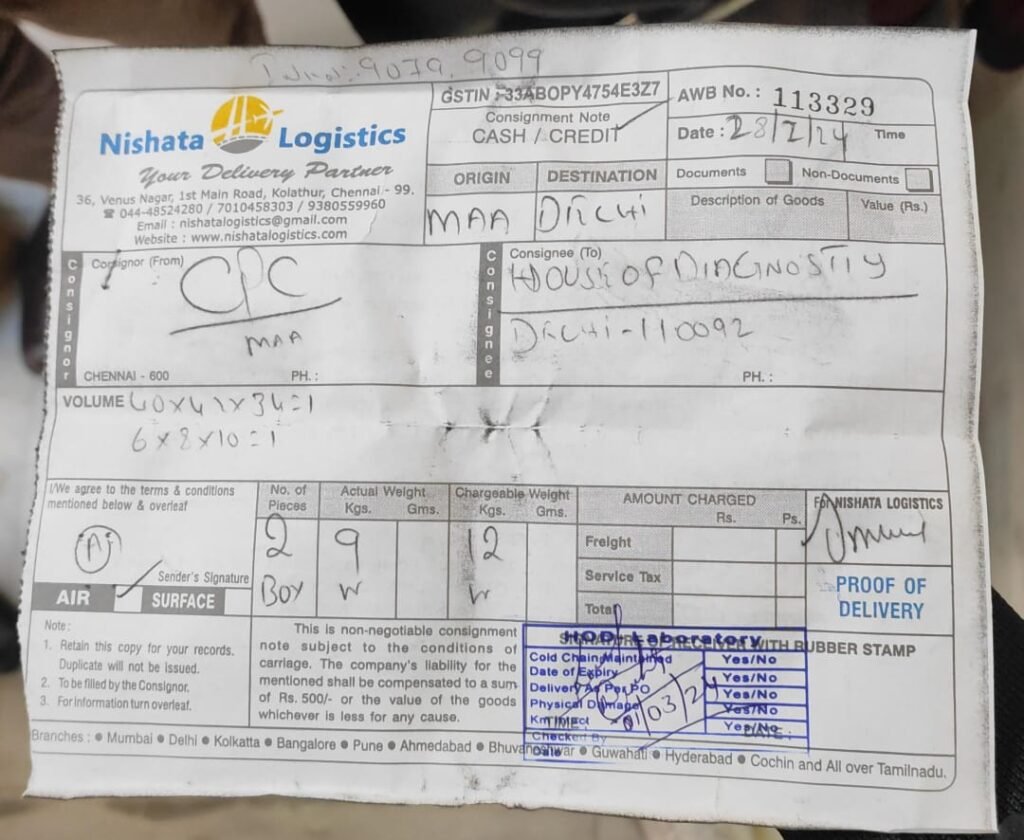 9079, 9099
Nishata Logistics
Your Delivery Partner
36, Venus Nagar, 1st Main Road, Kolathur, Chennai - 99.
☎ 044-48524280 / 7010458303 / 9380559960
Email : nishatalogistics@gmail.com
Website : www.nishatalogistics.com
GSTIN : 33ABOPY4754E3Z7
Consignment Note
CASH / CREDIT
AWB No. : 113329
Date : 28/2/24 Time
ORIGIN DESTINATION
MAA DELHI
Documents Non-Documents
Description of Goods Value (Rs.)
Consignor
Consignor (From)
CPC
MAA
CHENNAI - 600 PH. :
Consignee
Consignee (To)
HOUSE OF DIAGNOSTIY
DELHI-110092
PH. :
VOLUME 40x41x34=1
6x8x10=1
I/We agree to the terms & conditions
mentioned below & overleaf
Sender's Signature
AIR SURFACE
No. of Pieces
2
BOX
Actual Weight
Kgs. Gms.
9
W
Chargeable Weight
Kgs. Gms.
12
W
AMOUNT CHARGED
Rs. Ps.
Freight
Service Tax
Total
For NISHATA LOGISTICS
PROOF OF
DELIVERY
Note :
1. Retain this copy for your records.
Duplicate will not be issued.
2. To be filled by the Consignor.
3. For information turn overleaf.
This is non-negotiable consignment
note subject to the conditions of
carriage. The company's liability for the
mentioned shall be compensated to a sum
of Rs. 500/- or the value of the goods
whichever is less for any cause.
SIGNATURE RECEIVER WITH RUBBER STAMP
HOD Laboratory
Cold Chain Maintained Yes/No
Date of Expiry Yes/No
Delivery As Per PO Yes/No
Physical Damage Yes/No
Yes/No
Checked By
Date
01/03/24
TIME : DATE :
Branches : ● Mumbai ● Delhi ● Kolkatta ● Bangalore ● Pune ● Ahmedabad ● Bhuvaneshwar ● Guwahati ● Hyderabad ● Cochin and All over Tamilnadu.